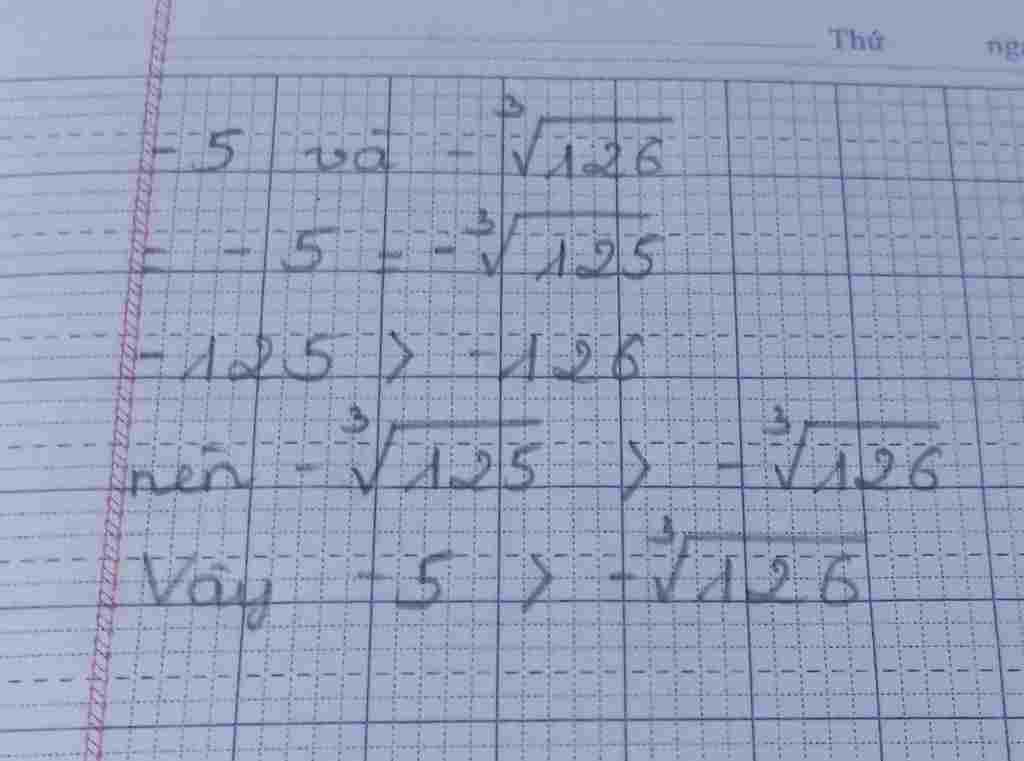 Thứ
- 5 và - ∛126
= - 5 = - ∛125
- 125 > - 126
nên - ∛125 > - ∛126
Vậy - 5 > - ∛126